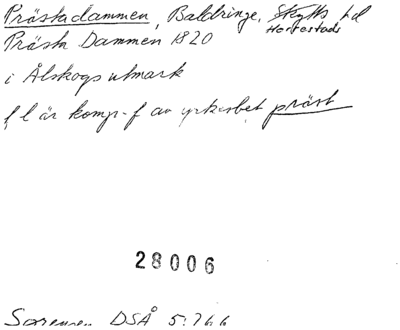 Prästadammen, Baldringe, Skytts hd
Herrestads
Prästa Dammen 1820
i Ålskogs utmark
f l är komp.-f av yrkesbet präst
28006
Sørensen DSÅ 5:266